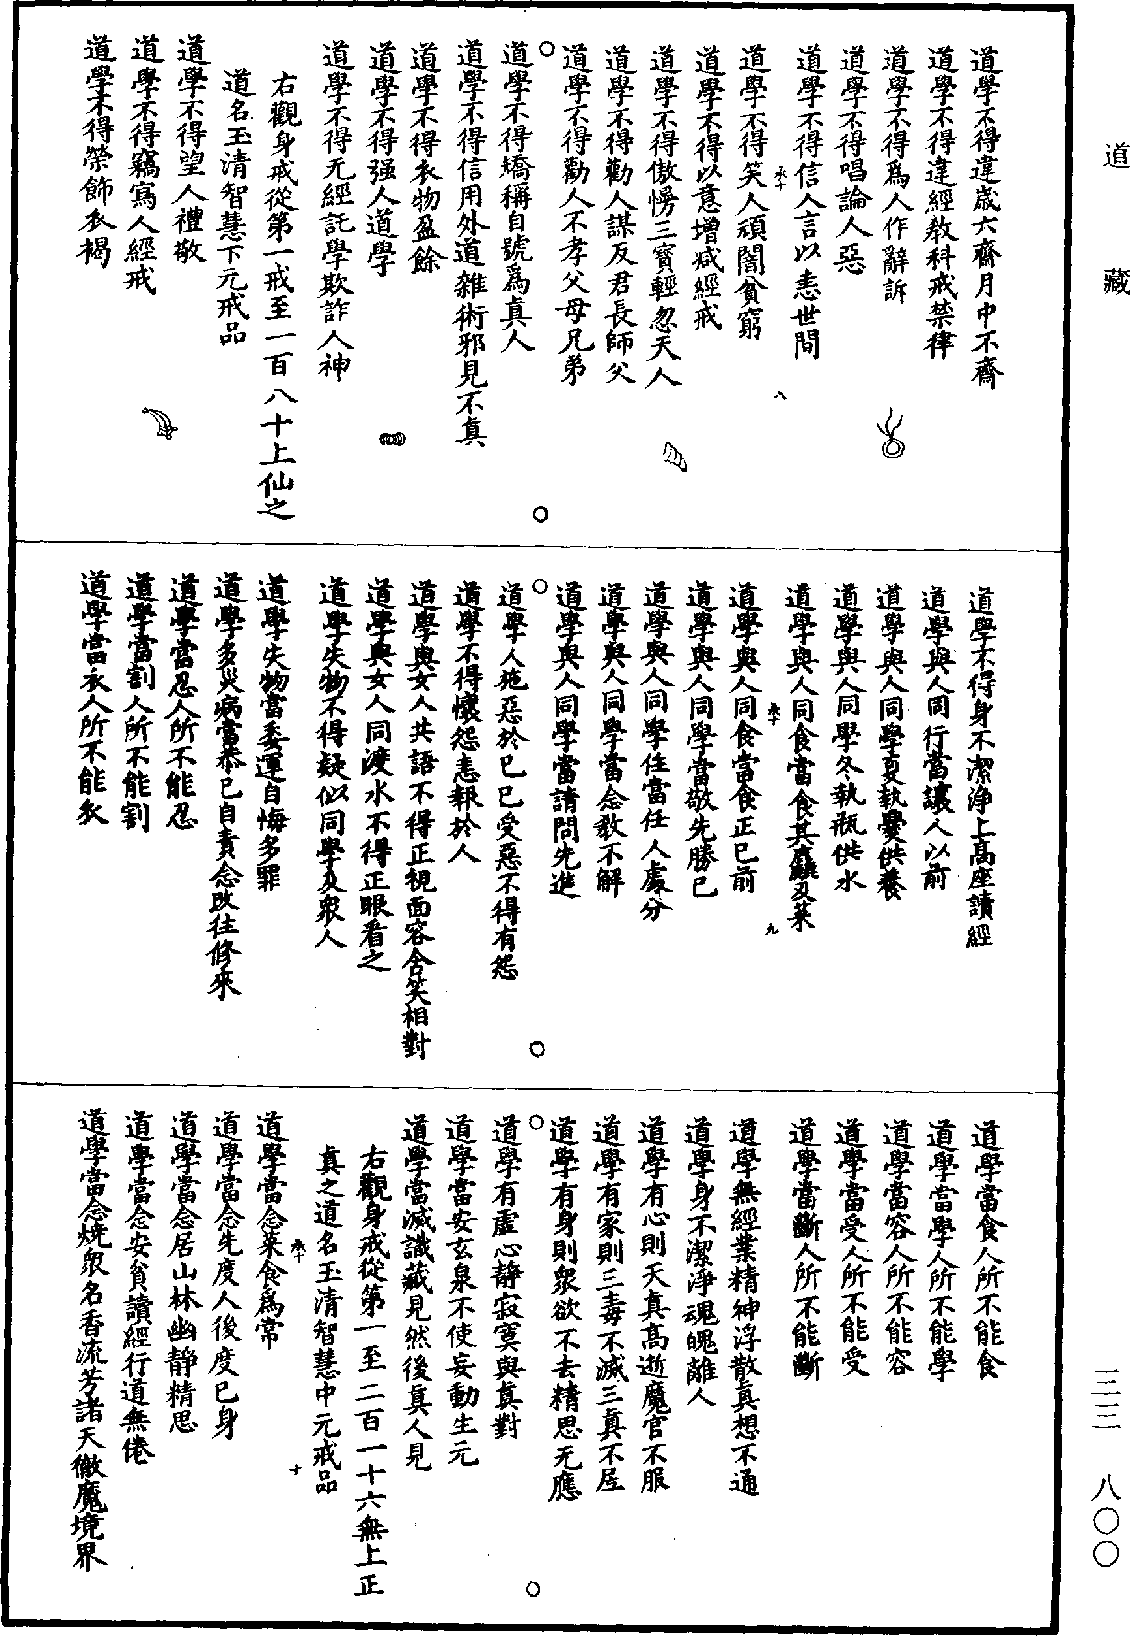 道藏
三三 八〇〇
道學不得違歲六齋月中不齋
道學不得違經教科戒禁律
道學不得爲人作辭訴
道學不得唱論人惡
道學不得信人言以恚世間
承十 八
道學不得笑人頑闇貧窮
道學不得以意增減經戒
道學不得傲慢三寶輕忽天人
道學不得勸人謀反君長師父
道學不得勸人不孝父母兄弟
道學不得矯稱自號爲真人
道學不得信用外道雜術邪見不真
道學不得衣物盈餘
道學不得强人道學
道學不得无經託學欺詐人神
右觀身戒從第一戒至一百八十上仙之
道名玉清智慧下元戒品
道學不得望人禮敬
道學不得竊寫人經戒
道學不得榮飾衣褐
道學不得身不潔淨上高座讀經
道學與人同行當讓人以前
道學與人同學夏執爨供養
道學與人同學冬執瓶供水
道學與人同食當食其麤及菜
承十 九
道學與人同食當食正已前
道學與人同學當敬先勝己
道學與人同學住當任人處分
道學與人同學當念教不解
道學與人同學當請問先進
道學人施惡於己己受惡不得有怨
道學不得懷怨恚報於人
道學與女人共語不得正視面容含笑相對
道學與女人同渡水不得正眼看之
道學失物不得疑似同學及衆人
道學失物當委運自悔多罪
道學多災病當恭己自責念改往修來
道學當忍人所不能忍
道學當割人所不能割
道學當衣人所不能衣
道學當食人所不能食
道學當學人所不能學
道學當容人所不能容
道學當受人所不能受
道學當斷人所不能斷
道學無經業精神浮散真想不通
道學身不潔淨魂魄離人
道學有心則天真高逝魔官不服
道學有家則三毒不滅三真不居
道學有身則衆欲不去精思无應
道學有虛心靜寂寞與真對
道學當安玄泉不使妄動生元
道學當滅識藏見然後真人見
右觀身戒從第一至二百一十六無上正
真之道名玉清智慧中元戒品
承十 十
道學當念菜食爲常
道學當念先度人後度己身
道學當念居山林幽靜精思
道學當念安貧讀經行道無倦
道學當念燒衆名香流芳諸天徹魔境界